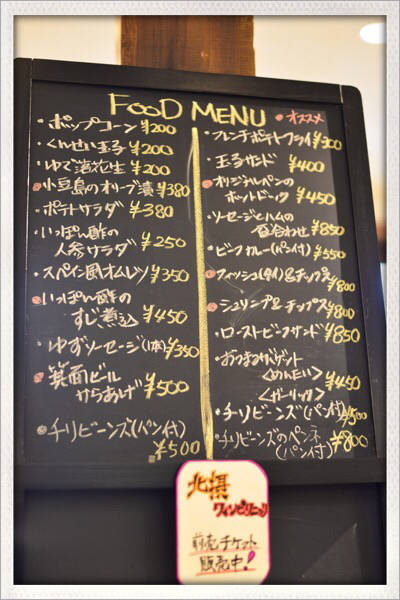 FOOD MENU
オススメ
・ポップコーン ¥200
・くんせい玉子 ¥200
・ゆで落花生 ¥200
小豆島のオリーブ漬 ¥380
・ポテトサラダ ¥380
・いっぽん酢の
人参サラダ ¥250
・スペイン風オムレツ ¥350
いっぽん酢の
すじ煮込 ¥450
・ゆずソーセージ(1本) ¥350
箕面ビール
からあげ ¥500
・チリビーンズ(パン付)
¥500
・フレンチポテトフライ ¥300
・玉子サンド ¥400
オリジナルペンの
ホットドック ¥450
・ソーセージとハムの
盛合わせ ¥850
・ビーフカレー(パン付) ¥550
フィッシュ(タイ)&チップス
¥800
シュリンプ&チップス ¥800
・ローストビーフサンド ¥850
・おつまみバゲット
<めんたい> ¥450
<ガーリック>
・チリビーンズ(パン付) ¥500
・チリビーンズのペンネ
(パン付) ¥800
北摂
ワインピクニック
前売チケット
販売中!